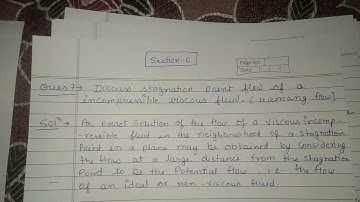 Section-C
Page No.
Date
Ques 7→ Discuss stagnation point flow of a
incompressible viscous fluid. (Hiemang flow)
Solⁿ→ An exact solution of the flow of a viscous incomp-
-ressible fluid in the neighbourhood of a stagnation
Point in a plane may be obtained by considering
the flow at a large distance from the stagnation
Point to be the Potential flow i.e. the flow
of an ideal or non-viscous fluid.